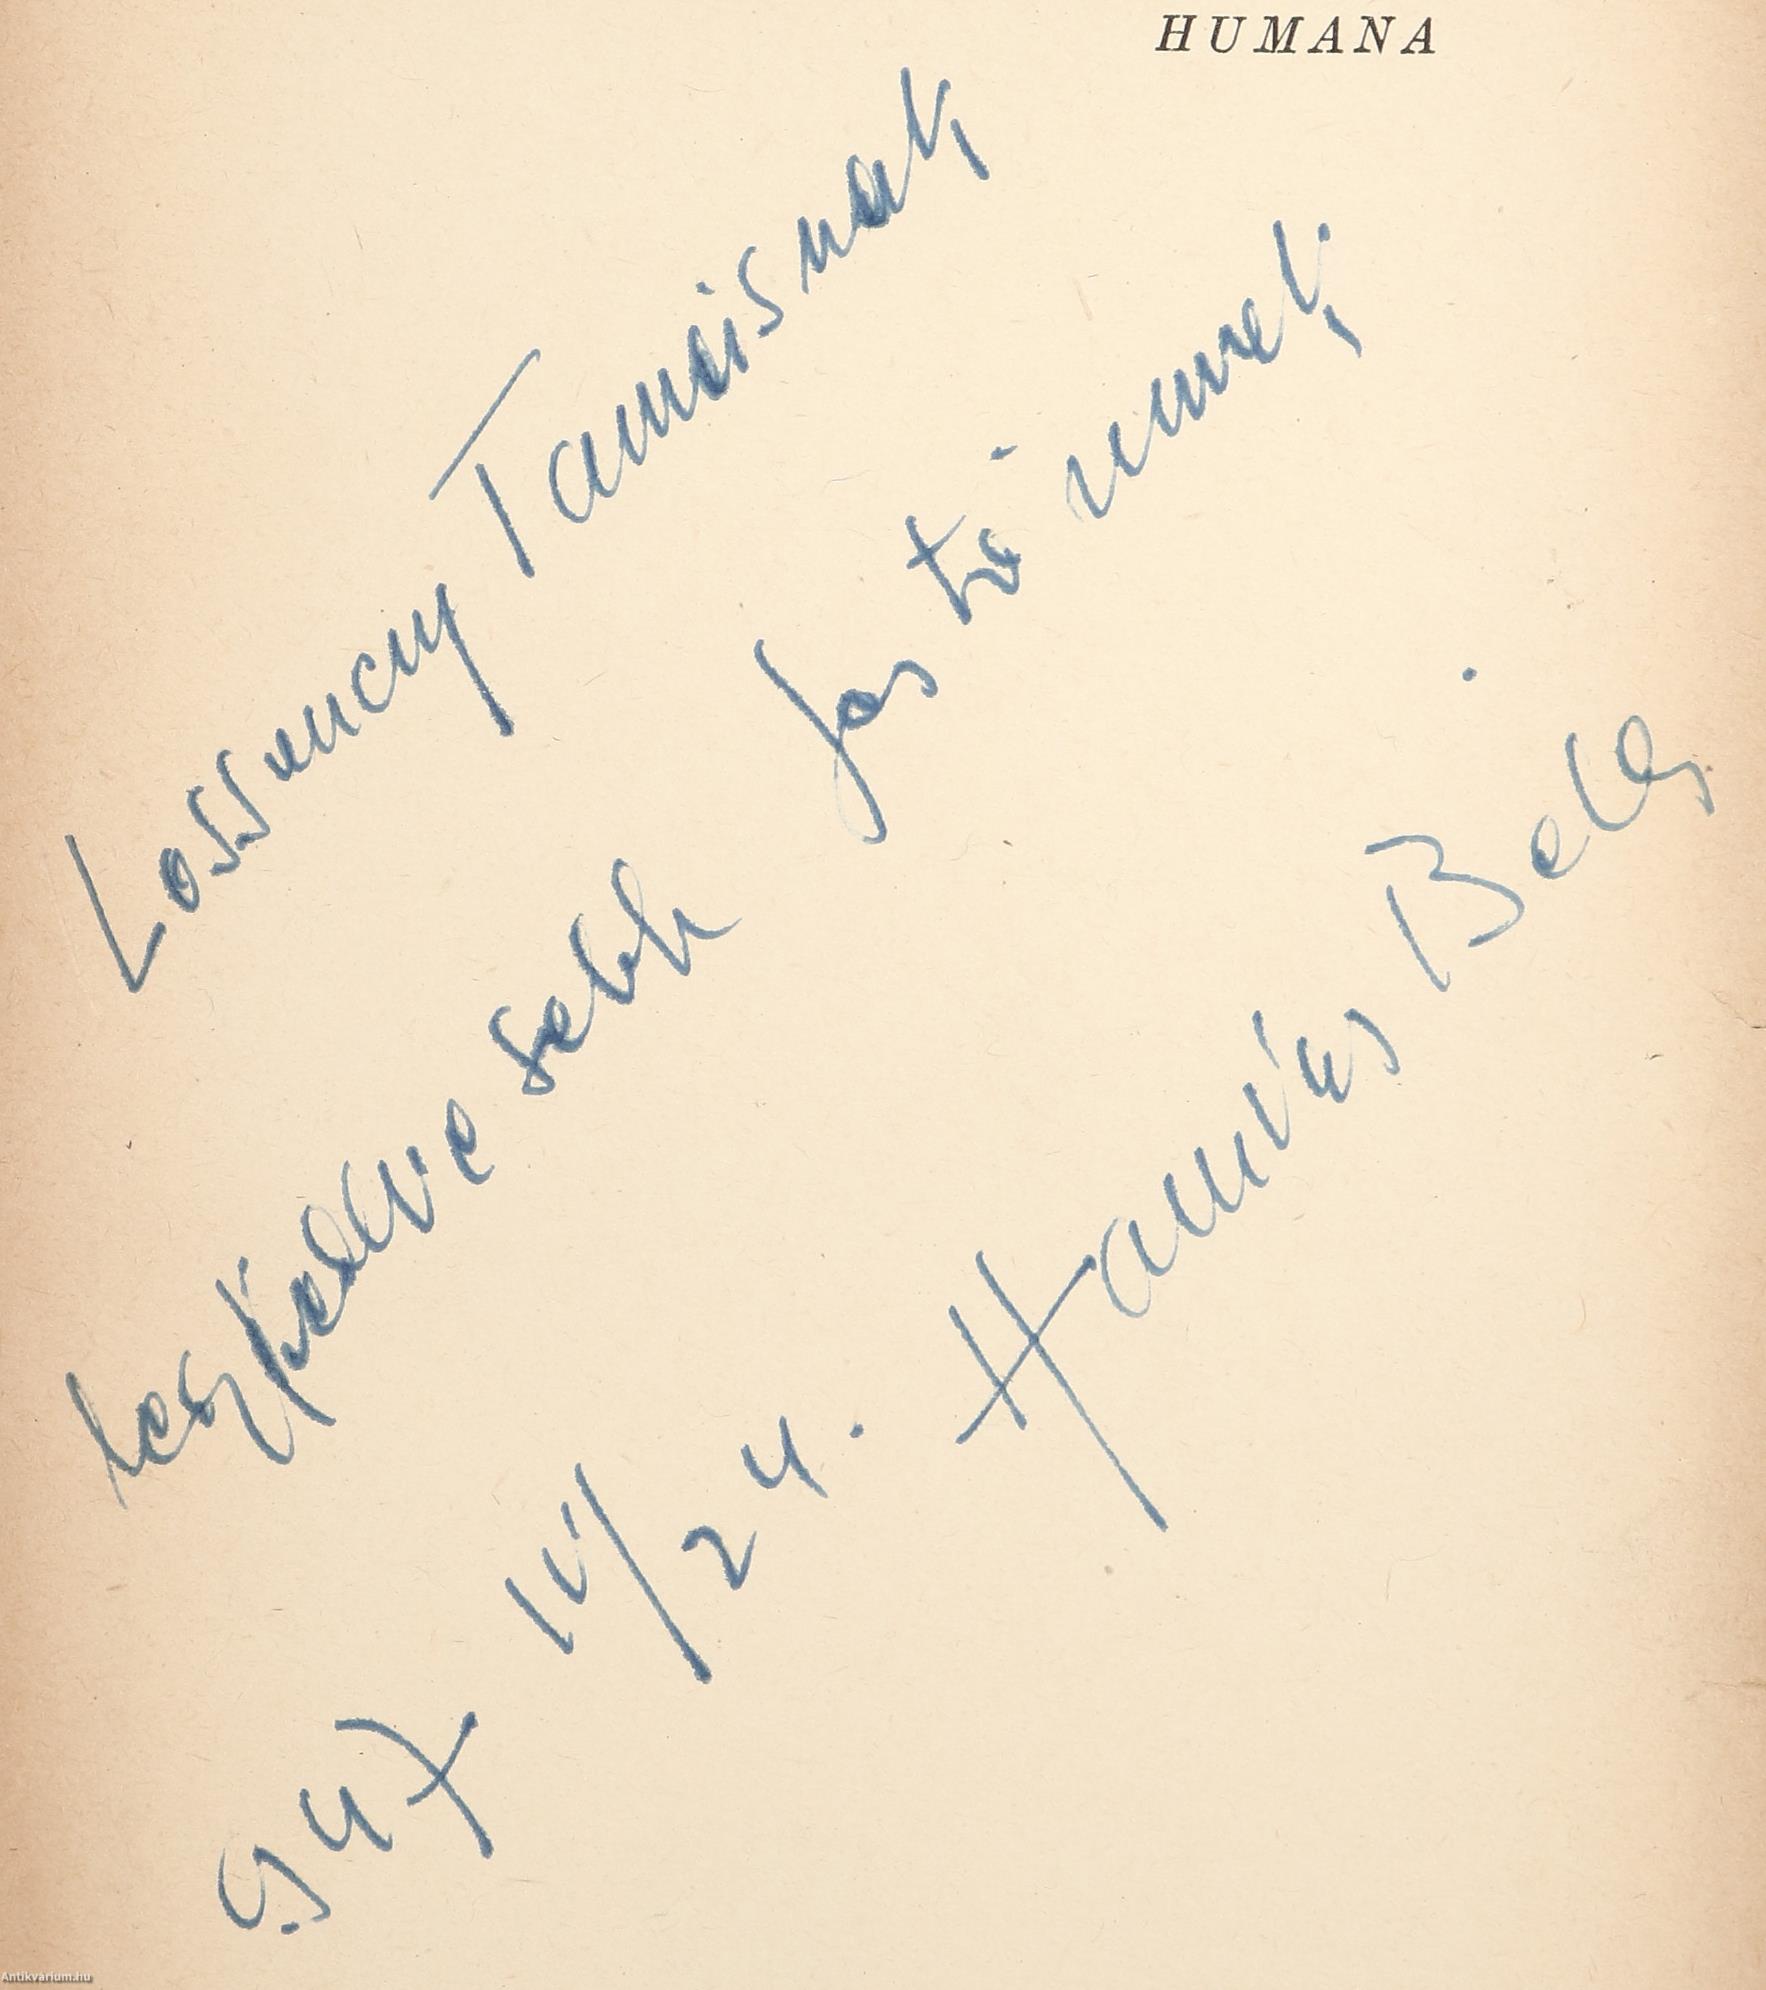 HUMANA
Lossoncy Tamásnak,
legkedvesebb festőmnek,
947 IV/24. Hamvas Béla
Antikvarium.hu